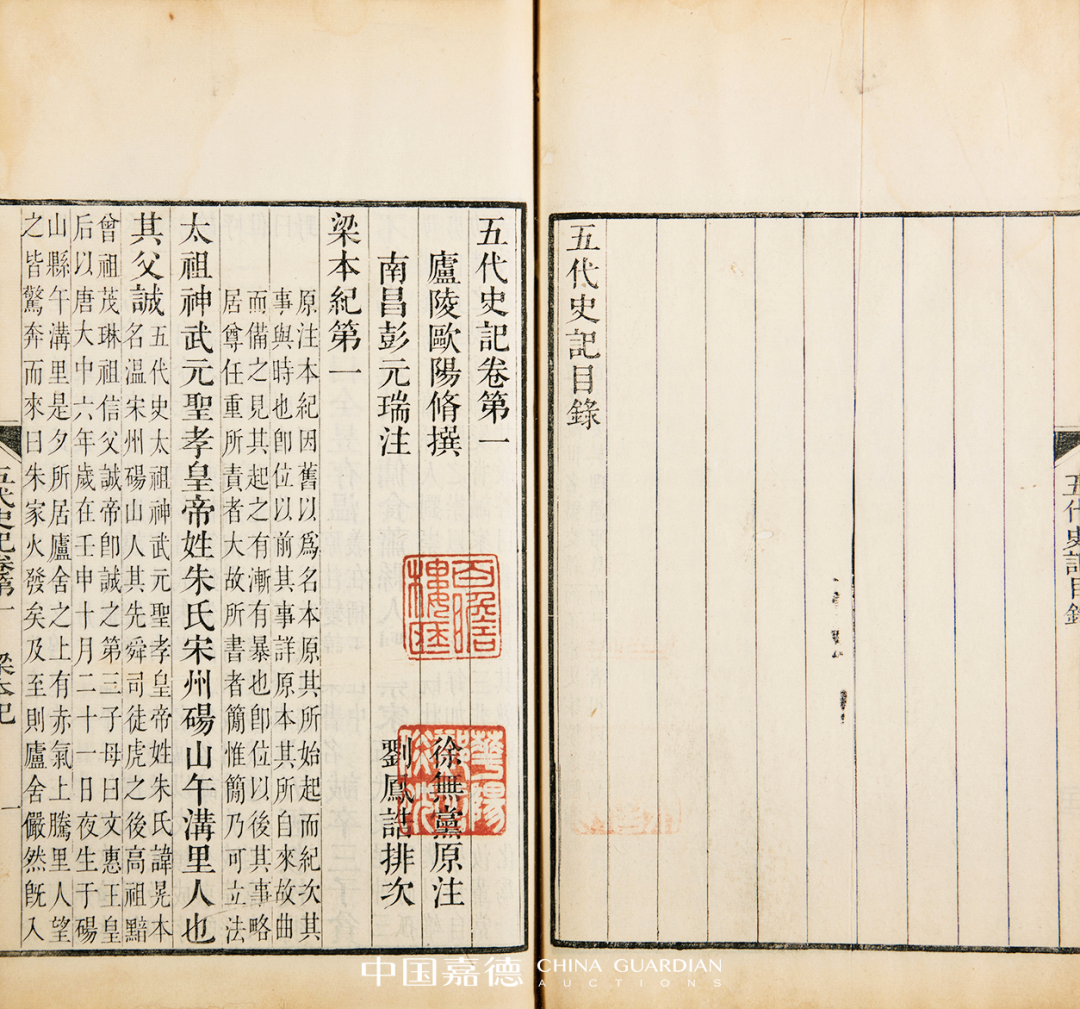 五代史記目錄
五代史記目錄
五代史記卷第一
廬陵歐陽脩撰 徐無黨原注
南昌彭元瑞注 劉鳳誥排次
梁本紀第一
原注本紀因舊以爲名本原其所始起而紀次其
事與時也卽位以前其事詳原本其所自來故曲
而備之見其起之有漸有暴也卽位以後其事略
居尊任重所責者大故所書者簡惟簡乃可立法
太祖神武元聖孝皇帝姓朱氏宋州碭山午溝里人也
其父誠
五代史太祖神武元聖孝皇帝姓朱氏諱晃本
名溫宋州碭山人其先舜司徒虎之後高祖黯
曾祖茂琳祖信父誠帝卽誠之第三子母曰文惠王皇
后以唐大中六年歲在壬申十月二十一日夜生于碭
山縣午溝里是夕所居廬舍之上有赤氣上騰里人望
之皆驚奔而來曰朱家火發矣及至則廬舍儼然旣入
五代史記卷第一 梁本紀 一
中国嘉德 CHINA GUARDIAN
AUCTIONS